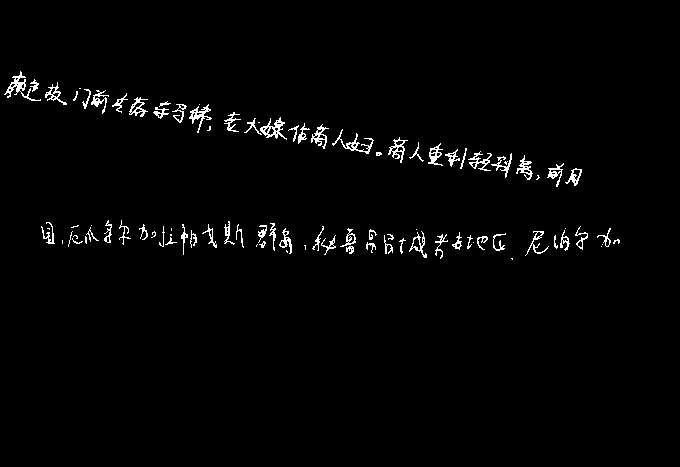 颜色故门前冷落车马稀,老大嫁作商人妇。商人重利轻别离,前月
国,厄瓜多尔加拉帕戈斯群岛,秘鲁昌昌城考古地区,尼泊尔加